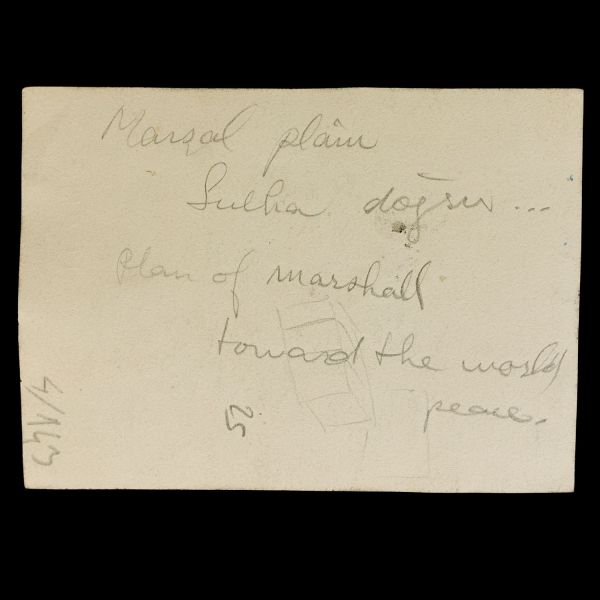 Marşal plânı
Sulha doğru...
Plan of marshall
toward the world
peace.
25
4/143